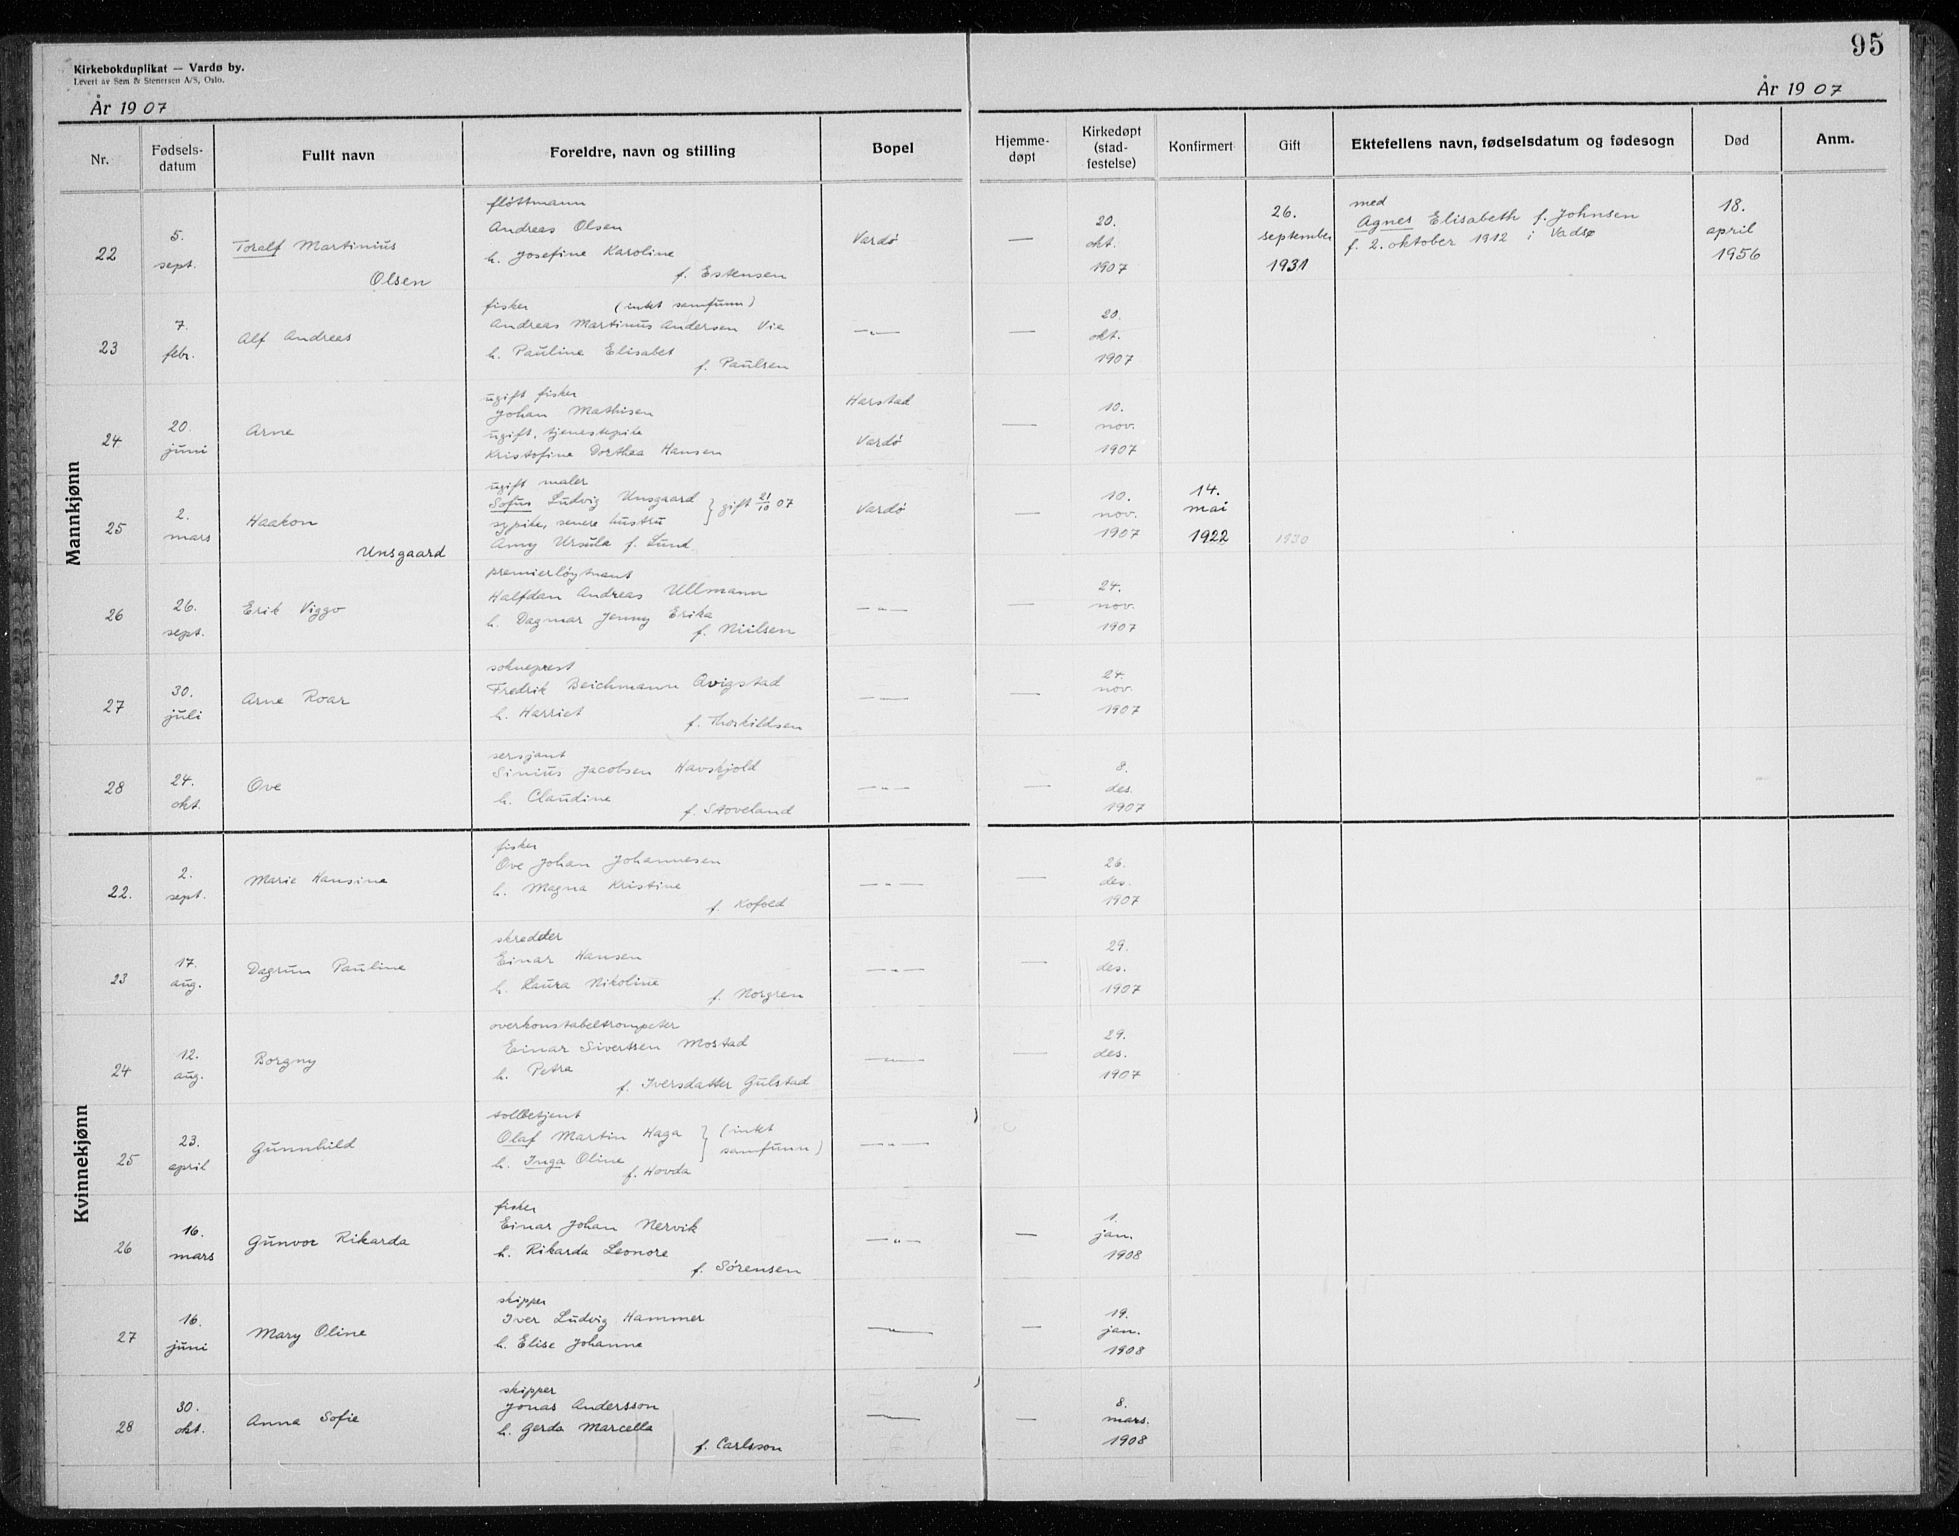 95
Kirkebokduplikat — Vardø by.
Levert av Sem & Stenersen A/S, Oslo.
År 1907
År 1907
Nr.
Fødsels-
datum
Fullt navn
Foreldre, navn og stilling
Bopel
Hjemme-
døpt
Kirkedøpt
(stad-
festelse)
Konfirmert
Gift
Ektefellens navn, fødselsdatum og fødesogn
Død
Anm.
Mannkjønn
22
5.
sept.
Toralf Martinius
Olsen
fløttmann
Andreas Olsen
h. Josefine Karoline
f. Estensen
Vardø
—
20.
okt.
1907
26.
september
1931
med
Agnes Elisabeth f. Johnsen
f. 2. oktober 1912 i Vadsø
18.
april
1956
23
7.
febr.
Alf Andreas
fisker (intet samfunn)
Andreas Martinus Andersen Vie
h. Pauline Elisabet
f. Paulsen
—„—
—
20.
okt.
1907
24
20
juni
Arne
ugift fisker
Johan Mathisen
ugift, tjenestepike
Kristofine Dorthea Hansen
Harstad
Vardø
—
10.
nov.
1907
25
2.
mars
Haakon
Unsgaard
ugift maler
Sofus Ludvig Unsgaard } gift 21/10 07
sypike, senere hustru
Amy Ursula f. Lund
Vardø
—
10.
nov.
1907
14.
mai
1922
1930
26
26.
sept.
Erik Viggo
premierløytnant
Halfdan Andreas Ullmann
h. Dagmar Jenny Erika
f. Nielsen
—„—
—
24.
nov.
1907
27
30.
juli
Arne Roar
sokneprest
Fredrik Beichmann Qvigstad
h. Harriet
f. Thorkildsen
—„—
—
24.
nov.
1907
28
24.
okt.
Ove
sersjant
Sinius Jacobsen Havskjold
h. Claudine
f. Stoveland
—„—
—
8.
des.
1907
Kvinnekjønn
22.
2.
sept.
Marie Hansine
fisker
Ove Johan Johannesen
h. Magna Kristine
f. Kofoed
—„—
—
26.
des.
1907
23
17.
aug.
Dagrun Pauline
skredder
Einar Hansen
h. Laura Nikoline
f. Norgren
—„—
—
29.
des.
1907
24
12.
aug.
Borgny
overkonstabeltrompeter
Einar Sivertsen Mostad
h. Petra
f. Iversdatter Gulstad
—„—
—
29.
des.
1907
25
23.
april
Gunnhild
tollbetjent
Olaf Martin Haga } (intet
h. Inga Oline samfunn)
f. Hovda
—„—
26
16.
mars
Gunvor Rikarda
fisker
Einar Johan Nervik
h. Rikarda Leonore
f. Sörensen
—„—
—
1.
jan.
1908
27
16.
juni
Mary Oline
skipper
Iver Ludvig Hammer
h. Elise Johanne
—„—
—
19.
jan.
1908
28
30.
okt.
Anna Sofie
skipper
Jonas Andersson
h. Gerda Marcella
f. Carlsson
—„—
—
8.
mars.
1908